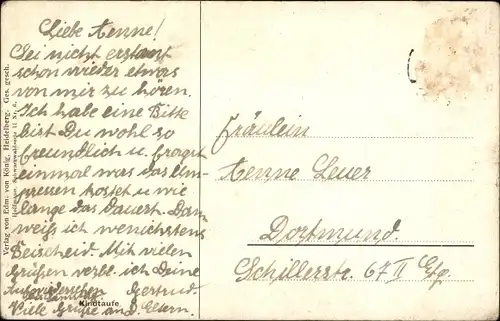 Liebe Aenne!
Sei nicht erstaunt
schon wieder etwas
von mir zu hören.
Ich habe eine Bitte
bist Du wohl so
freundlich u. fragst
einmal was das Ein-
pressen kostet u wie
lange das dauert. Dann
weiß ich wenichstens
Beischeid. Mit vielen
Grüßen verbl. ich Deine
Gertrud.
Viele Grüße an d. Eltern.
Kindtaufe
Verlag von Edm. von König, Heidelberg. Ges. gesch.
Fräulein
Aenne Leuer
Dortmund.
Schillerstr. 67 II Etg.